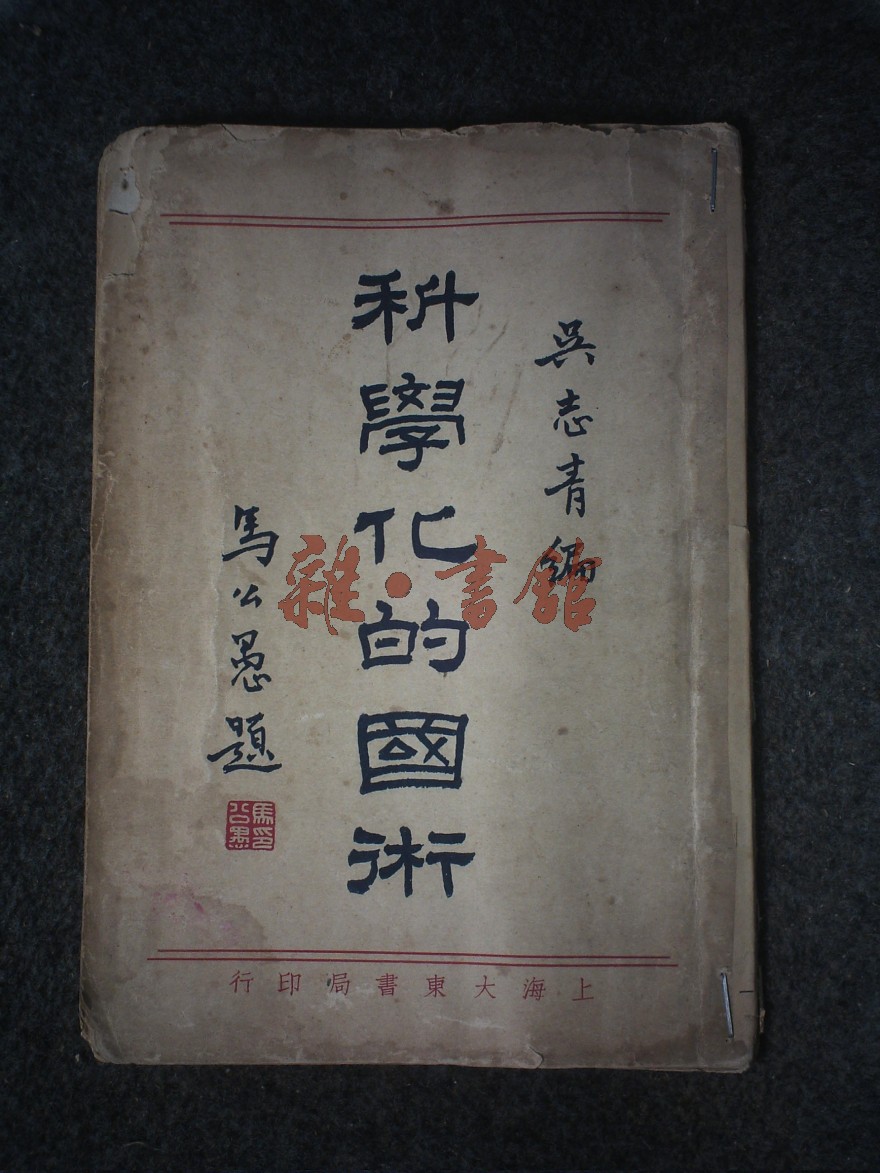 吳志青編
科學化的國術
馬公愚題
馬公愚印
上海大東書局印行
雜·書館